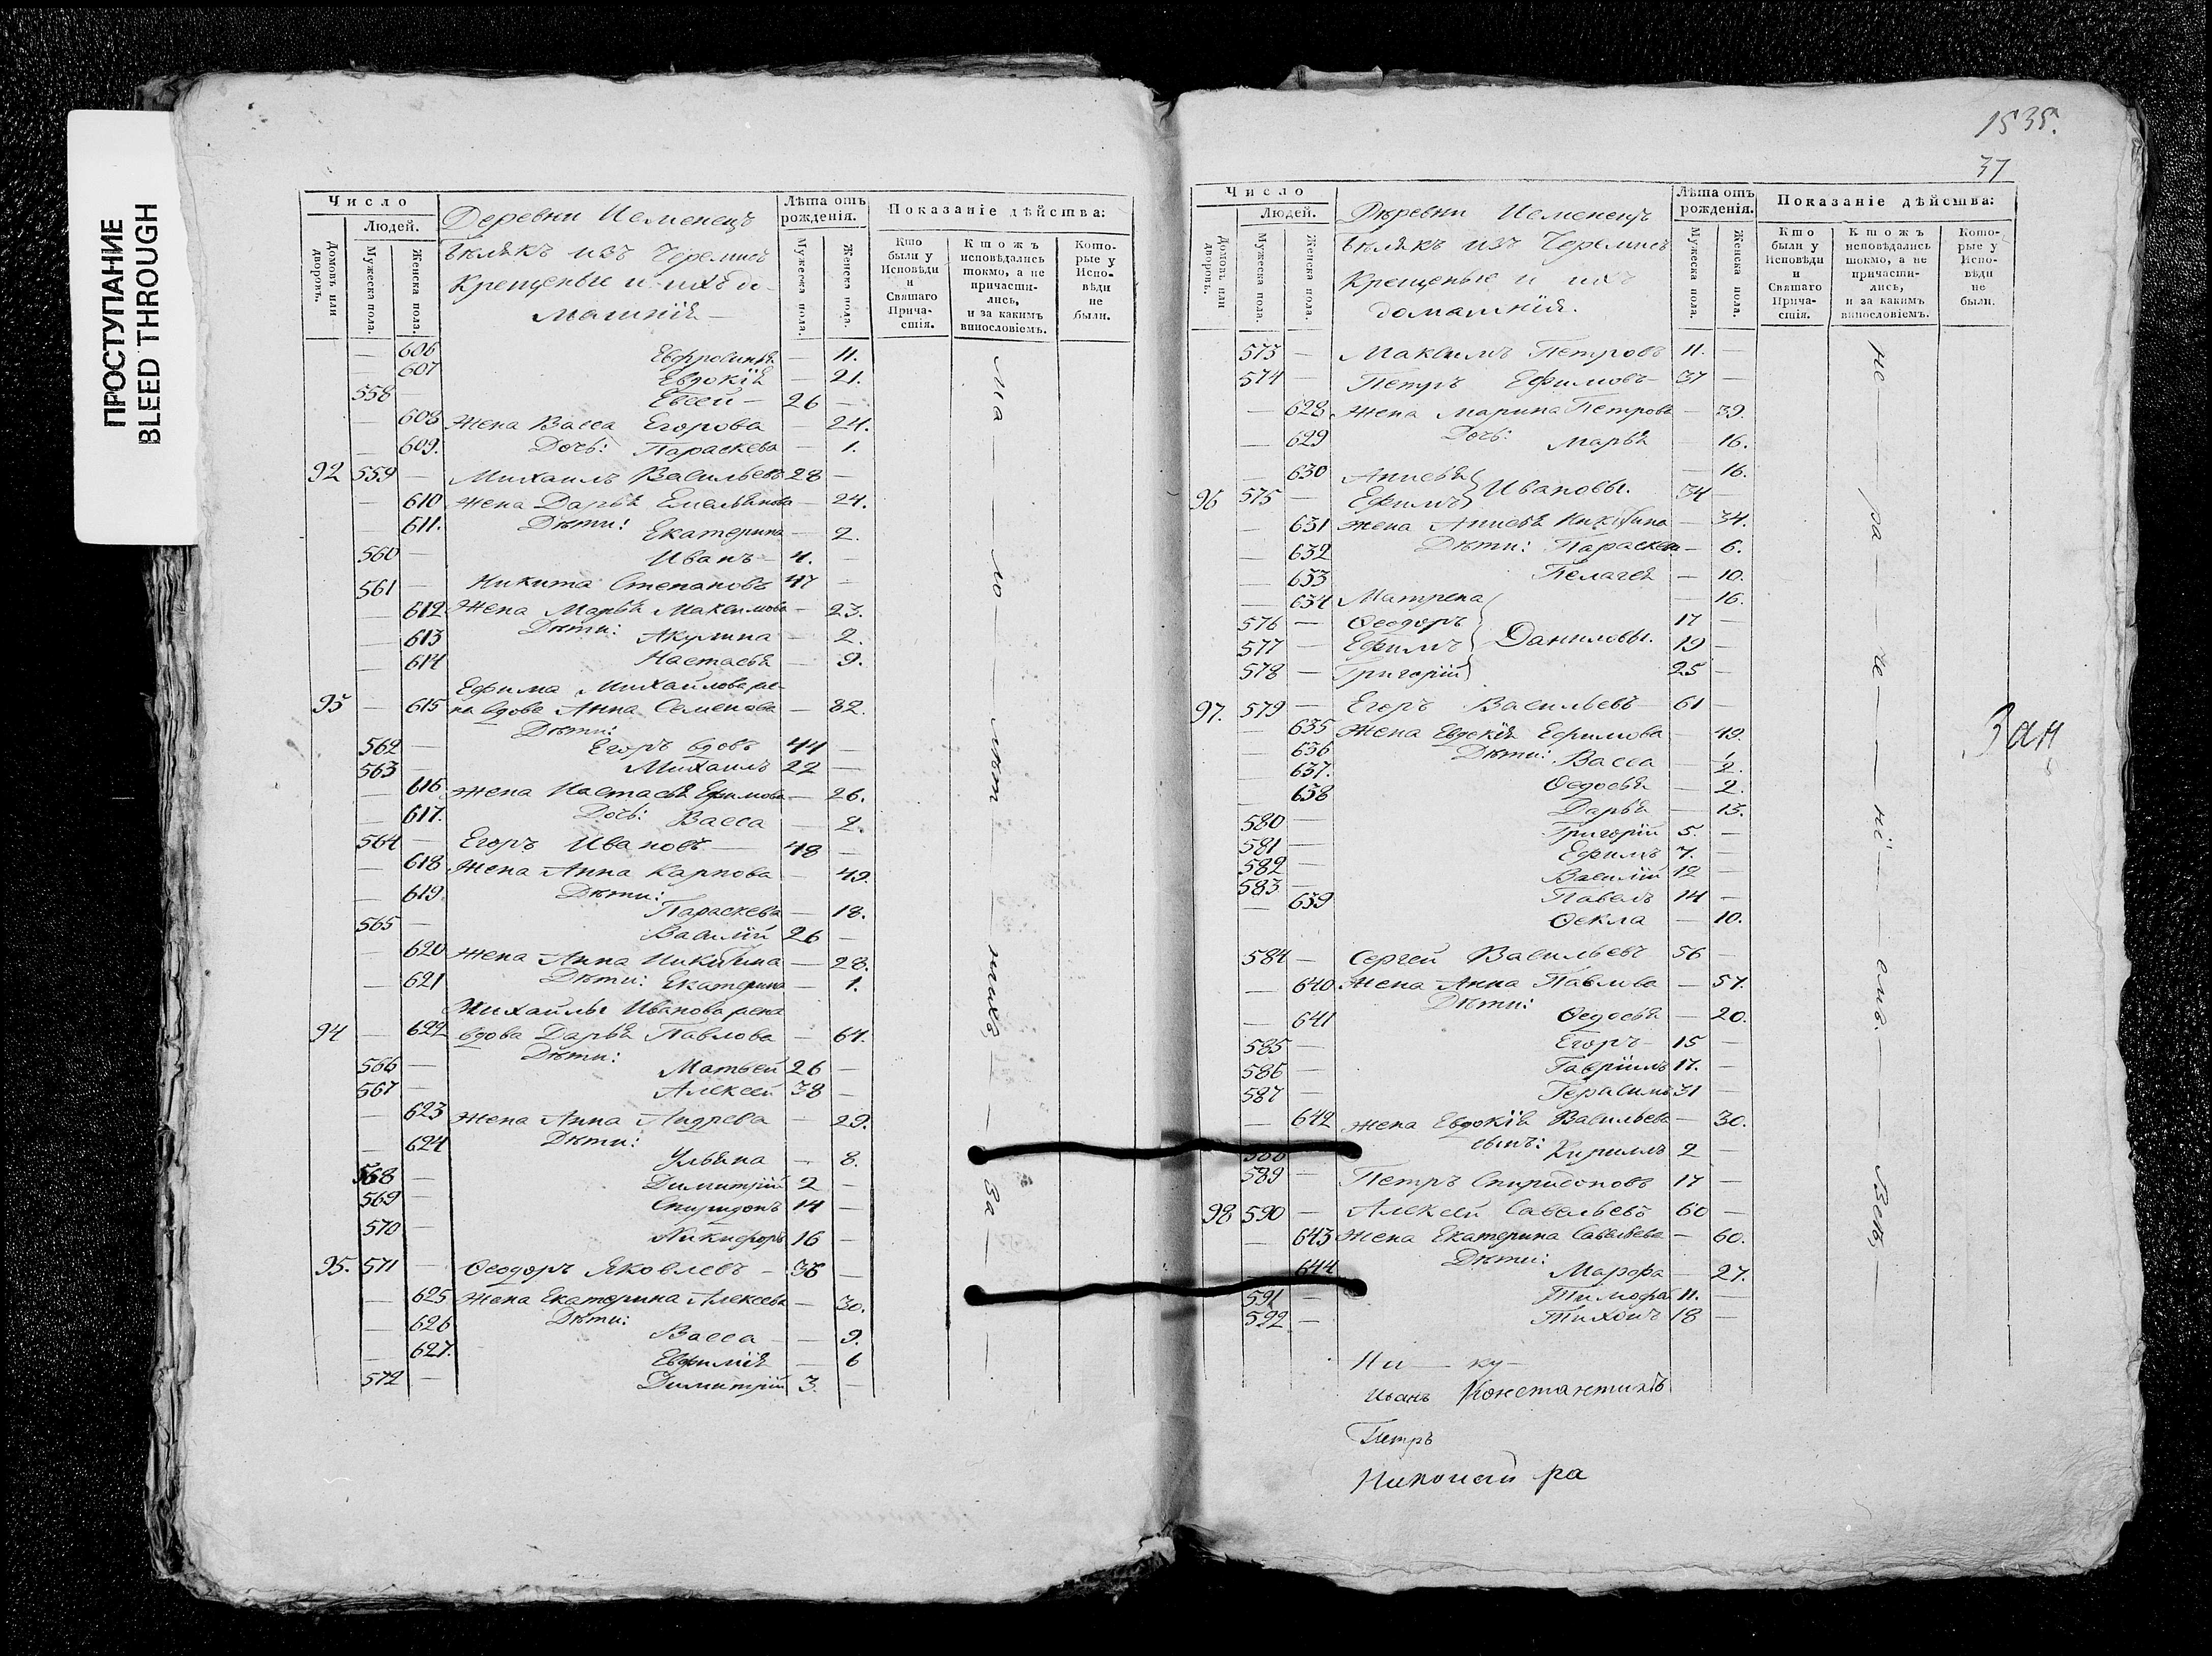 ПРОСТУПАНИЕ
BLEED THROUGH
Число
Людей.
Домовъ или дворовъ.
Мужеска пола.
Женска пола.
Деревни
изъ Черемисъ
Крещеные и ихъ до-
машнія
Лѣта отъ рожденія.
Мужеска пола.
Женска пола.
Показаніе дѣйства:
Кто были у Исповѣди и Святаго Причастія.
Кто жъ исповѣдались токмо, а не причастились, и за какимъ винословіемъ.
Которые у Исповѣди не были.
— 606 Евфросинія — 11.
— 607 Евдокія — 21.
558 — Евсей — 26 —
— 608 Жена Васса Егорова — 24.
— 609. Дочь: Параскева — 1.
92 559 — Михаилъ Васильевъ 28 —
— 610 Жена Дарья Емельянова — 24.
— 611. Дѣти: Екатерина — 2.
560 — Иванъ 4. —
561 — Никита Степановъ 47 —
— 612 Жена Марья Максимова — 23.
— 613 Дѣти: Акулина — 2.
— 614 Настасья — 9.
Ефима Михайлова же-
95 — 615 на вдова Анна Семенова — 82.
Дѣти:
562 — Егоръ вдовъ 44 —
563 — Михаилъ 22 —
— 616 Жена Настасья Ефимова — 26.
— 617. Дочь: Васса — 2.
564 — Егоръ Ивановъ — 48 —
— 618 Жена Анна Карпова — 49.
— 619 Дѣти:
Параскева — 18.
565 — Василій 26 —
— 620 Жена Анна Никитина — 28.
— 621 Дѣти: Екатерина — 1.
Михайлы Иванова жена
94 — 622 вдова Дарья Павлова — 61.
Дѣти:
566 — Матвей 26 —
567 — Алексей 38 —
— 623 Жена Анна Андрева — 29.
— 624 Дѣти:
Ульяна — 8.
568 — Димитрій 2 —
569 — Спиридонъ 14 —
570 — Никифоръ 16 —
95. 571 — Ѳеодоръ Яковлевъ — 36 —
— 625 Жена Екатерина Алексева — 30.
— 626 Дѣти:
Васса — 9.
— 627. Евфимія — 6
572 — Димитрій 3. —
ма — ло — лѣт — ствомъ — За —
1535.
37
Число
Людей.
Домовъ или дворовъ.
Мужеска пола.
Женска пола.
Деревни
изъ Черемисъ
Крещеные и ихъ
домашнія.
Лѣта отъ рожденія.
Мужеска пола.
Женска пола.
Показаніе дѣйства:
Кто были у Исповѣди и Святаго Причастія.
Кто жъ исповѣдались токмо, а не причастились, и за какимъ винословіемъ.
Которые у Исповѣди не были.
573 — Максимъ Петровъ 11. —
574 — Петръ Ефимовъ 37 —
— 628 Жена Марина Петрова — 39.
— 629 Дочь: Марья — 16.
— 630 Анисья — 16.
96 575 — Ефимъ } Ивановы. 34 —
— 631 Жена Анисья Никитина — 34.
— 632 Дѣти: Параскева — 6.
— 633 Пелагея — 10.
— 634 Матрена — 16.
576 — Ѳеодоръ 17 —
577 — Ефимъ } Даниловы. 19 —
578 — Григорій 25 —
97. 579 — Егоръ Васильевъ 61 —
— 635 Жена Евдокія Ефимова — 49.
— 636 Дѣти: Васса — 1.
— 637. Ѳедосья — 2.
— 638 Дарья — 13.
580 — Григорій 5. —
581 — Ефимъ 7. —
582 — Василій 12 —
583 — Павелъ 14 —
— 639 Ѳекла — 10.
584 — Сергей Васильевъ 56 —
— 640 Жена Анна Павлова — 57.
Дѣти:
— 641 Ѳедосья — 20.
585 — Егоръ 15 —
586 — Гавріилъ 17. —
587 — Герасимъ 31 —
— 642 Жена Евдокія Васильева — 30.
588 сынъ: Кириллъ 2 —
589 — Петръ Спиридоновъ 17 —
98 590 — Алексей Савельевъ 60 —
— 643 Жена Екатерина Савельева — 60.
Дѣти:
644 Марфа — 27.
591 — Тимофей 11. —
592 — Тихонъ 18 —
не — ра — че — ні — емъ. — Всѣ
Зан
Ни — ку —
Иванъ Константинъ
Петръ
Николай ра